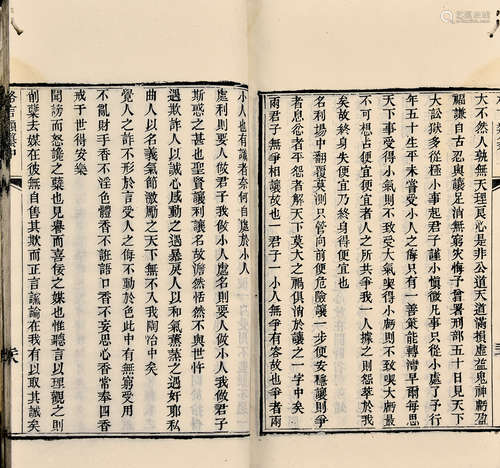 大不然人孰無天理良心非公道天滿損虛益鬼神虧盈
福謙自古忍與讓足消無窮災悔子曾署刑部五十日見天下
大訟獄多從極小事起君子謹小慎微凡事只從小處了子行
年五十生平未嘗受小人之侮只有一善策能轉灣早爾每思
天下事受得小氣則不致受大氣喫得小虧則不致喫大虧最
不可想占便宜便宜者人之所共爭我一人據之則怨萃於我
矣故終身失便宜乃終身得便宜也
名利場中翻覆莫測只管向前便危險讓一步便安穩讓則爭
者息忿者平怨者解天下莫大之禍俱消於讓之一字中矣
兩君子無爭相讓故也一君子一小人無爭有容故也爭者兩
小人也有識者奈何自處於小人
處利則要人做君子我做小人處名則要人做小人我做君子
斯惑之甚也聖賢讓利讓名故澹然恬然不與世忤
遇欺詐人以誠心感動之遇暴戾人以和氣薰蒸之遇奸邪私
曲人以名義氣節激勵之天下無不入我陶冶中矣
覺人之詐不形於言受人之侮不動於色此中有無窮受用
不亂財手香不淫色體香不誑語口香不妄思心香常奉四香
戒于世得安樂
聞謗而怒讒之蘗也見譽而喜佞之媒也惟聽言以理觀之則
削蘗去媒在彼無自售其欺而正言讜論在我有以取其誠矣
格言類纂中